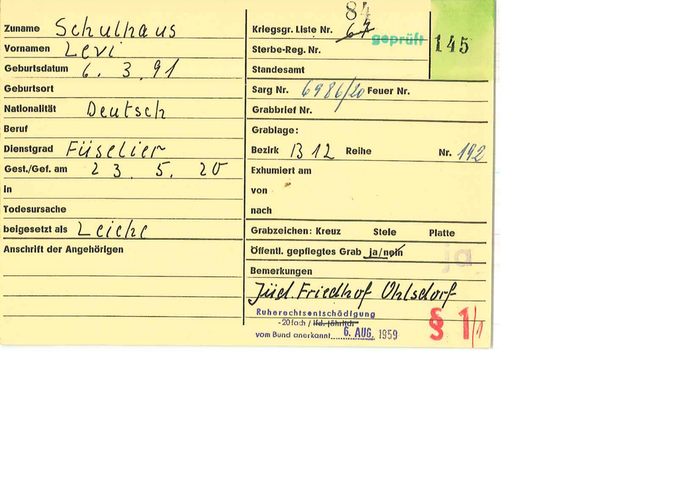 Zuname Schulhaus
Vornamen Levi
Geburtsdatum 6. 3. 91
Geburtsort
Nationalität Deutsch
Beruf
Dienstgrad Füselier
Gest./Gef. am 23. 5. 20
in
Todesursache
beigesetzt als Leiche
Anschrift der Angehörigen
84
Kriegsgr. Liste Nr. 67
geprüft
145
Sterbe-Reg. Nr.
Standesamt
Sarg Nr. 6986/20 Feuer Nr.
Grabbrief Nr.
Grablage:
Bezirk B 12 Reihe Nr. 192
Exhumiert am
von
nach
Grabzeichen: Kreuz Stele Platte
Öffentl. gepflegtes Grab ja/nein
ja
Bemerkungen
Jüd. Friedhof Ohlsdorf
Ruherechtsentschädigung
-20fach / lfd. jährlich-
vom Bund anerkannt 6. AUG. 1959
§ 1/1